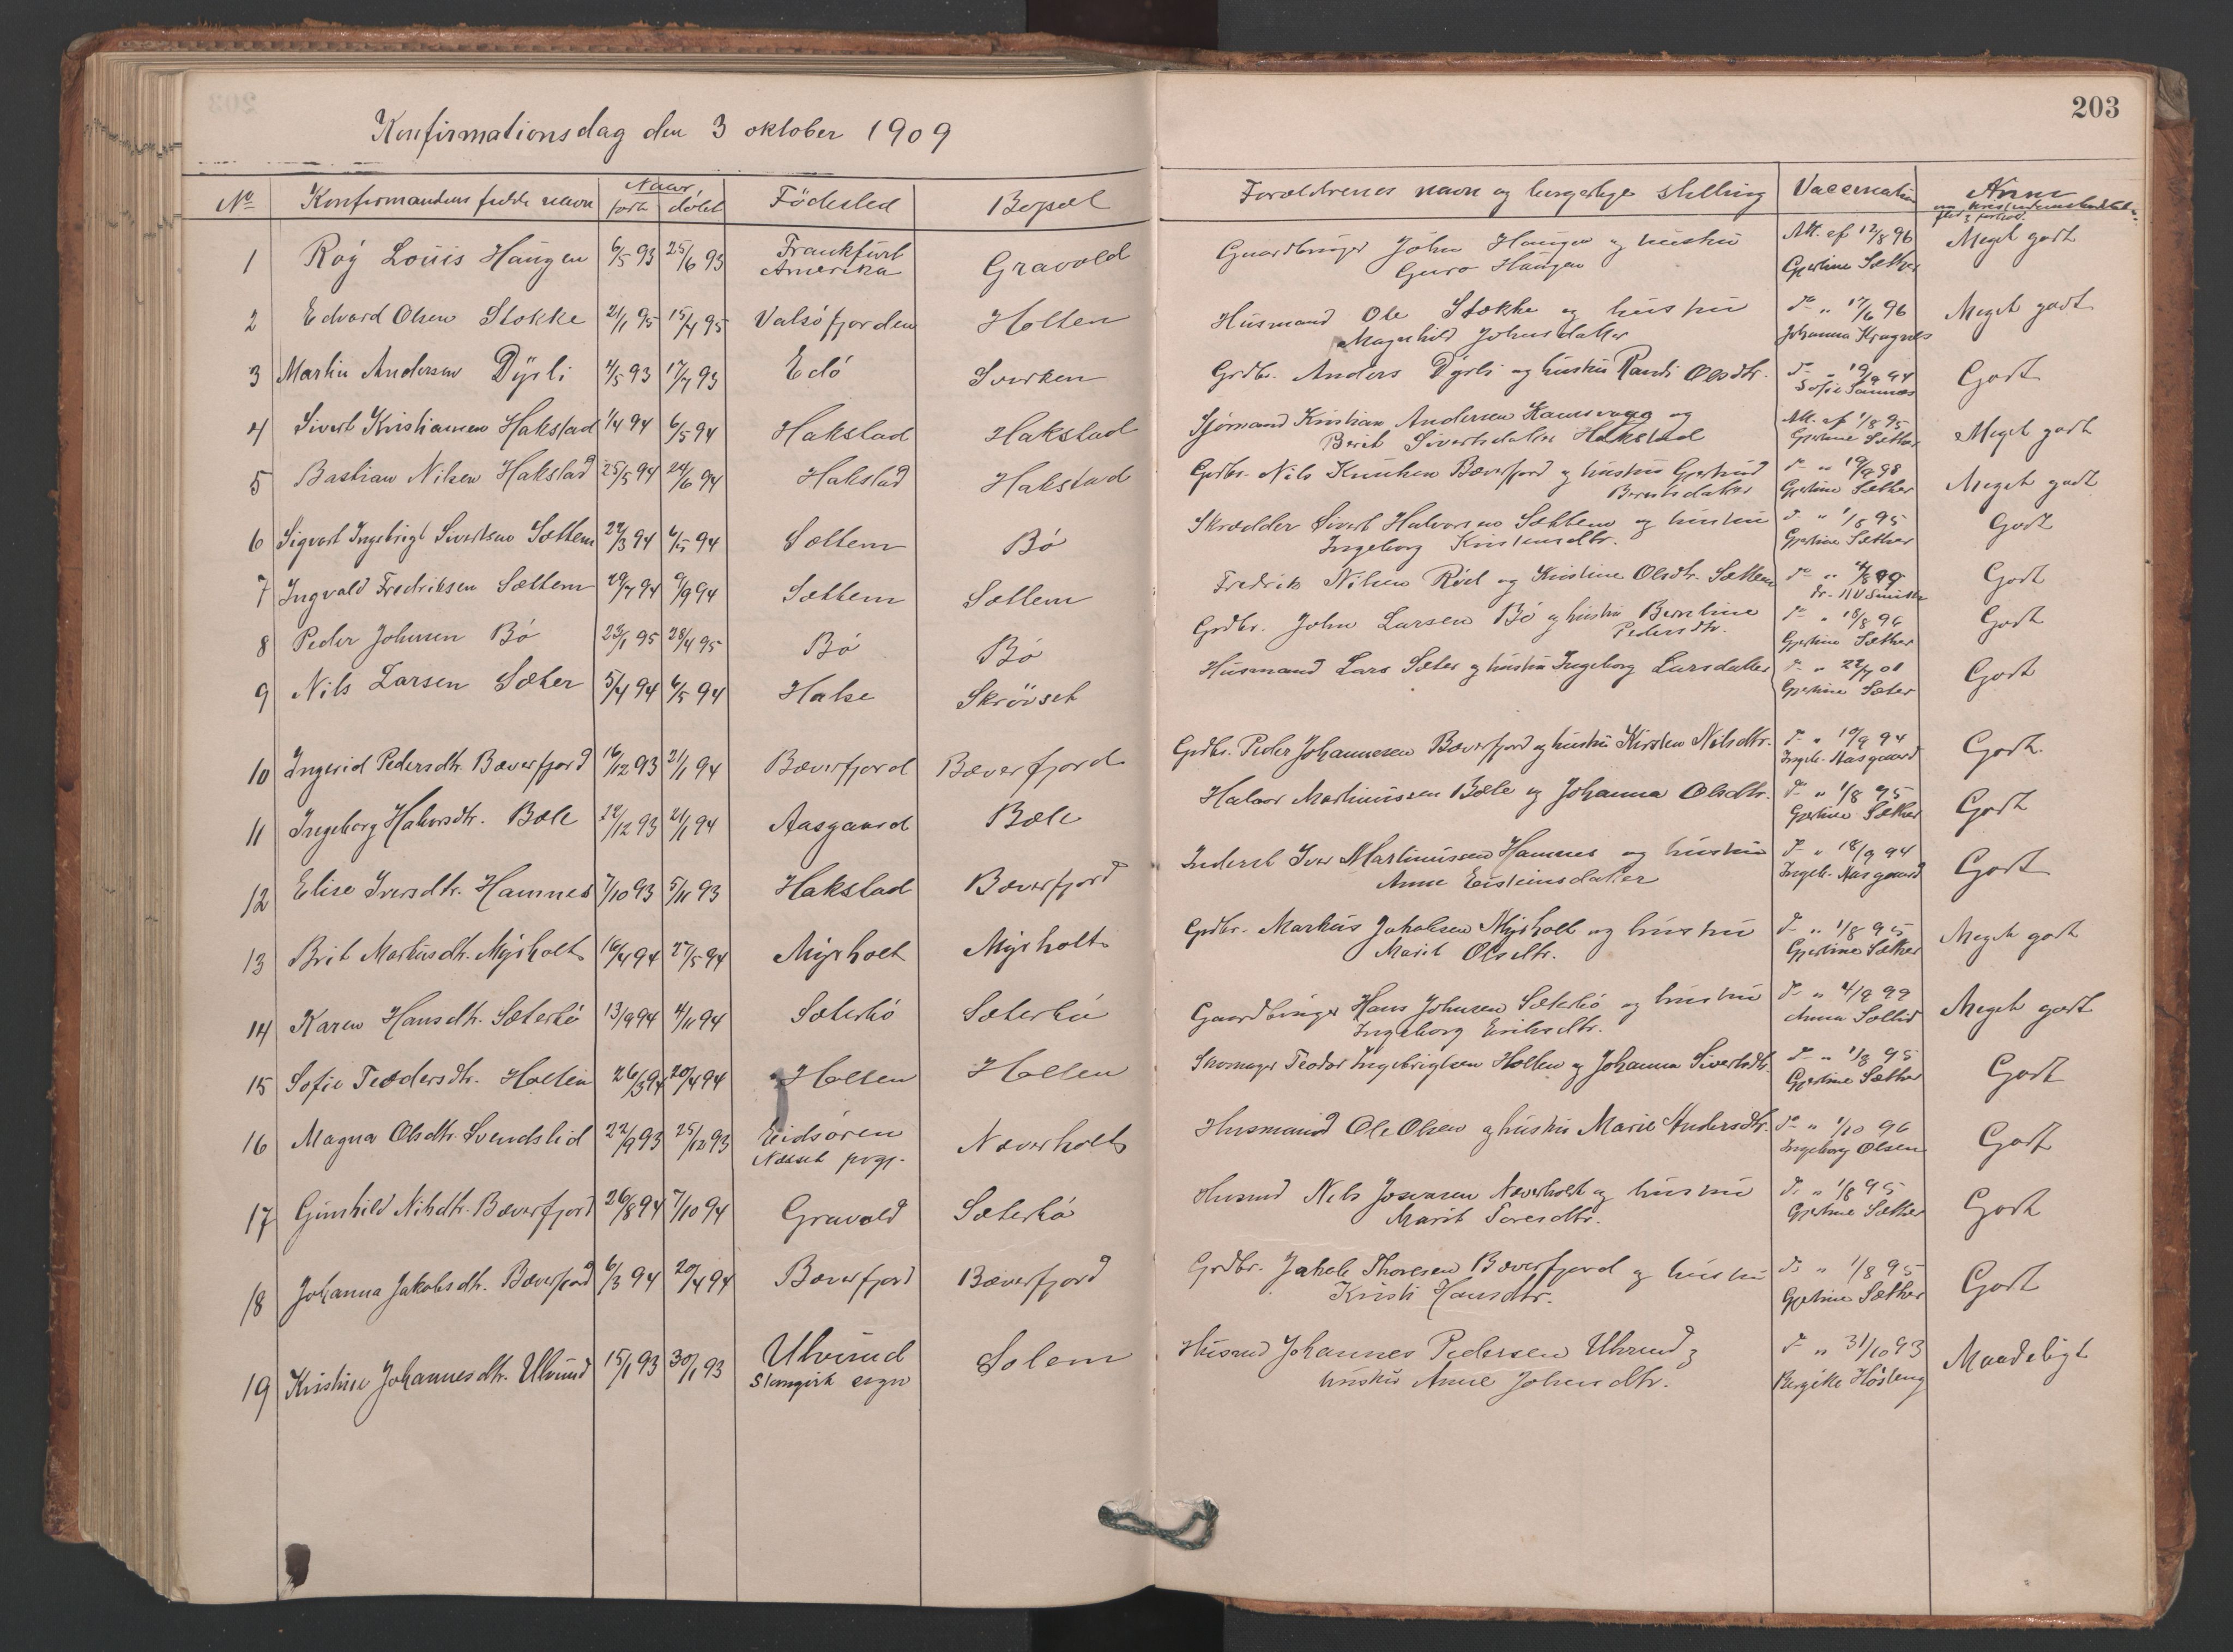 203
Konfirmationsdag den 3 oktober 1909
No Konfirmandens fulde navn Naar født døbt Födested Bopæl Forældrenes navn og borgerlige stilling Vaccination Anm.
1 Roy Louis Haugen 6/5 93 25/6 93 Frankfurt Amerika Gravold Gaardbruger John Haugen og hustru Guro Haugen Att. af 12/8 96 Gjertine Sæther Meget godt
2 Edvard Olsen Stokke 21/1 95 15/4 95 Valsöfjorden Holten Husmand Ole Stokke og hustru Magnhild Johnsdatter do " 17/6 96 Johanna Krognes Meget godt
3 Martin Andersen Dyrli 4/5 93 17/7 93 Edö Svorken Grdbr. Anders Dyrli og hustru Randi Olsdtr. do " 19/9 94 Sofie Sannæs Godt
4 Sivert Kristiansen Hakstad 1/4 94 6/5 94 Hakstad Hakstad Sjömand Kristian Andersen Ramsvaag og Berit Sivertsdatter Hakstad Att. af 1/8 95 Gjertine Sæther Meget godt
5 Bastian Nilsen Hakstad 25/5 94 24/6 94 Hakstad Hakstad Grdbr. Nils Knutsen Bæverfjord og hustru Gjertrud Berntsdatter do " 19/9 98 Gjertine Sæther Meget godt
6 Sigvart Ingebrigt Sivertsen Sættem 22/3 94 6/5 94 Sættem Bö Skrædder Sivert Halvorsen Sættem og hustru Ingeborg Kristensdtr. do " 1/8 95 Gjertine Sæther Godt
7 Ingvald Fredriksen Sættem 29/7 94 9/9 94 Sættem Sættem Fredrik Nilsen Röd og Kristine Olsdtr. Sættem do " 4/8 99 Godt
8 Peder Johnsen Bö 23/1 95 28/4 95 Bö Bö Grdbr. John Larsen Bö og hustru Berntine Pedersdtr. do " 18/8 96 Gjertine Sæther Godt
9 Nils Larsen Sæter 5/4 94 6/5 94 Halse Skrövset Husmand Lars Sæter og hustru Ingeborg Larsdatter do " 22/7 01 Gjertine Sæter Godt
10 Ingerid Pedersdtr. Bæverfjord 16/12 93 21/1 94 Bæverfjord Bæverfjord Grdbr. Peder Johannesen Bæverfjord og hustru Kirsten Nilsdtr. do " 19/9 94 Ingeb. Aasgaard Godt
11 Ingeborg Halvorsdtr. Bæle 22/12 93 21/1 94 Aasgaard Bæle Halvor Martinussen Bæle og Johanna Olsdtr. do " 1/8 95 Gjertine Sæther Godt
12 Elise Iversdtr. Hamnes 7/10 93 5/11 93 Hakstad Bæverfjord Inderst Iver Martinussen Hamnes og hustru Anne Eisteinsdatter do " 18/9 94 Ingeb. Aasgaard Godt
13 Brit Markusdtr. Myrholt 16/4 94 27/5 94 Myrholt Myrholt Grdbr. Markus Jakobsen Myrholt og hustru Marit Olsdtr. do " 1/8 95 Gjertine Sæther Meget godt
14 Karen Hansdtr. Sæterbö 13/9 94 4/11 94 Sæterbö Sæterbö Gaardbruger Hans Johnsen Sæterbö og hustru Ingeborg Eriksdtr. do " 4/9 99 Anna Sollid Meget godt
15 Sofie Teodorsdtr. Holten 26/3 94 20/4 94 Holten Holten Skomager Teodor Ingebrigtsen Holten og Johanna Sivertsdtr. do " 1/8 95 Gjertine Sæther Godt
16 Magna Olsdtr. Svendslid 22/9 93 25/12 93 Eidsören Nesset prgj. Næverholt Husmand Ole Olsen og hustru Marie Andersdtr. do " 1/10 96 Ingeborg Olsen Godt
17 Gunhild Nilsdtr. Bæverfjord 26/8 94 7/10 94 Gravold Sæterbö Husmd Nils Næverholt og hustru Marit Toresdtr. do " 1/8 95 Gjertine Sæther Godt
18 Johanna Jakobsdtr. Bæverfjord 6/3 94 20/4 94 Bæverfjord Bæverfjord Grdbr. Jakob Thoresen Bæverfjord og hustru Kristi Hansdtr. do " 1/8 95 Gjertine Sæther Godt
19 Kristine Johannesdtr. Ulvund 15/1 93 30/1 93 Ulvund Stangvik sogn Solem Husmd Johannes Pedersen Ulvund og hustru Anne Johnsdtr. do " 31/10 93 Maadeligt